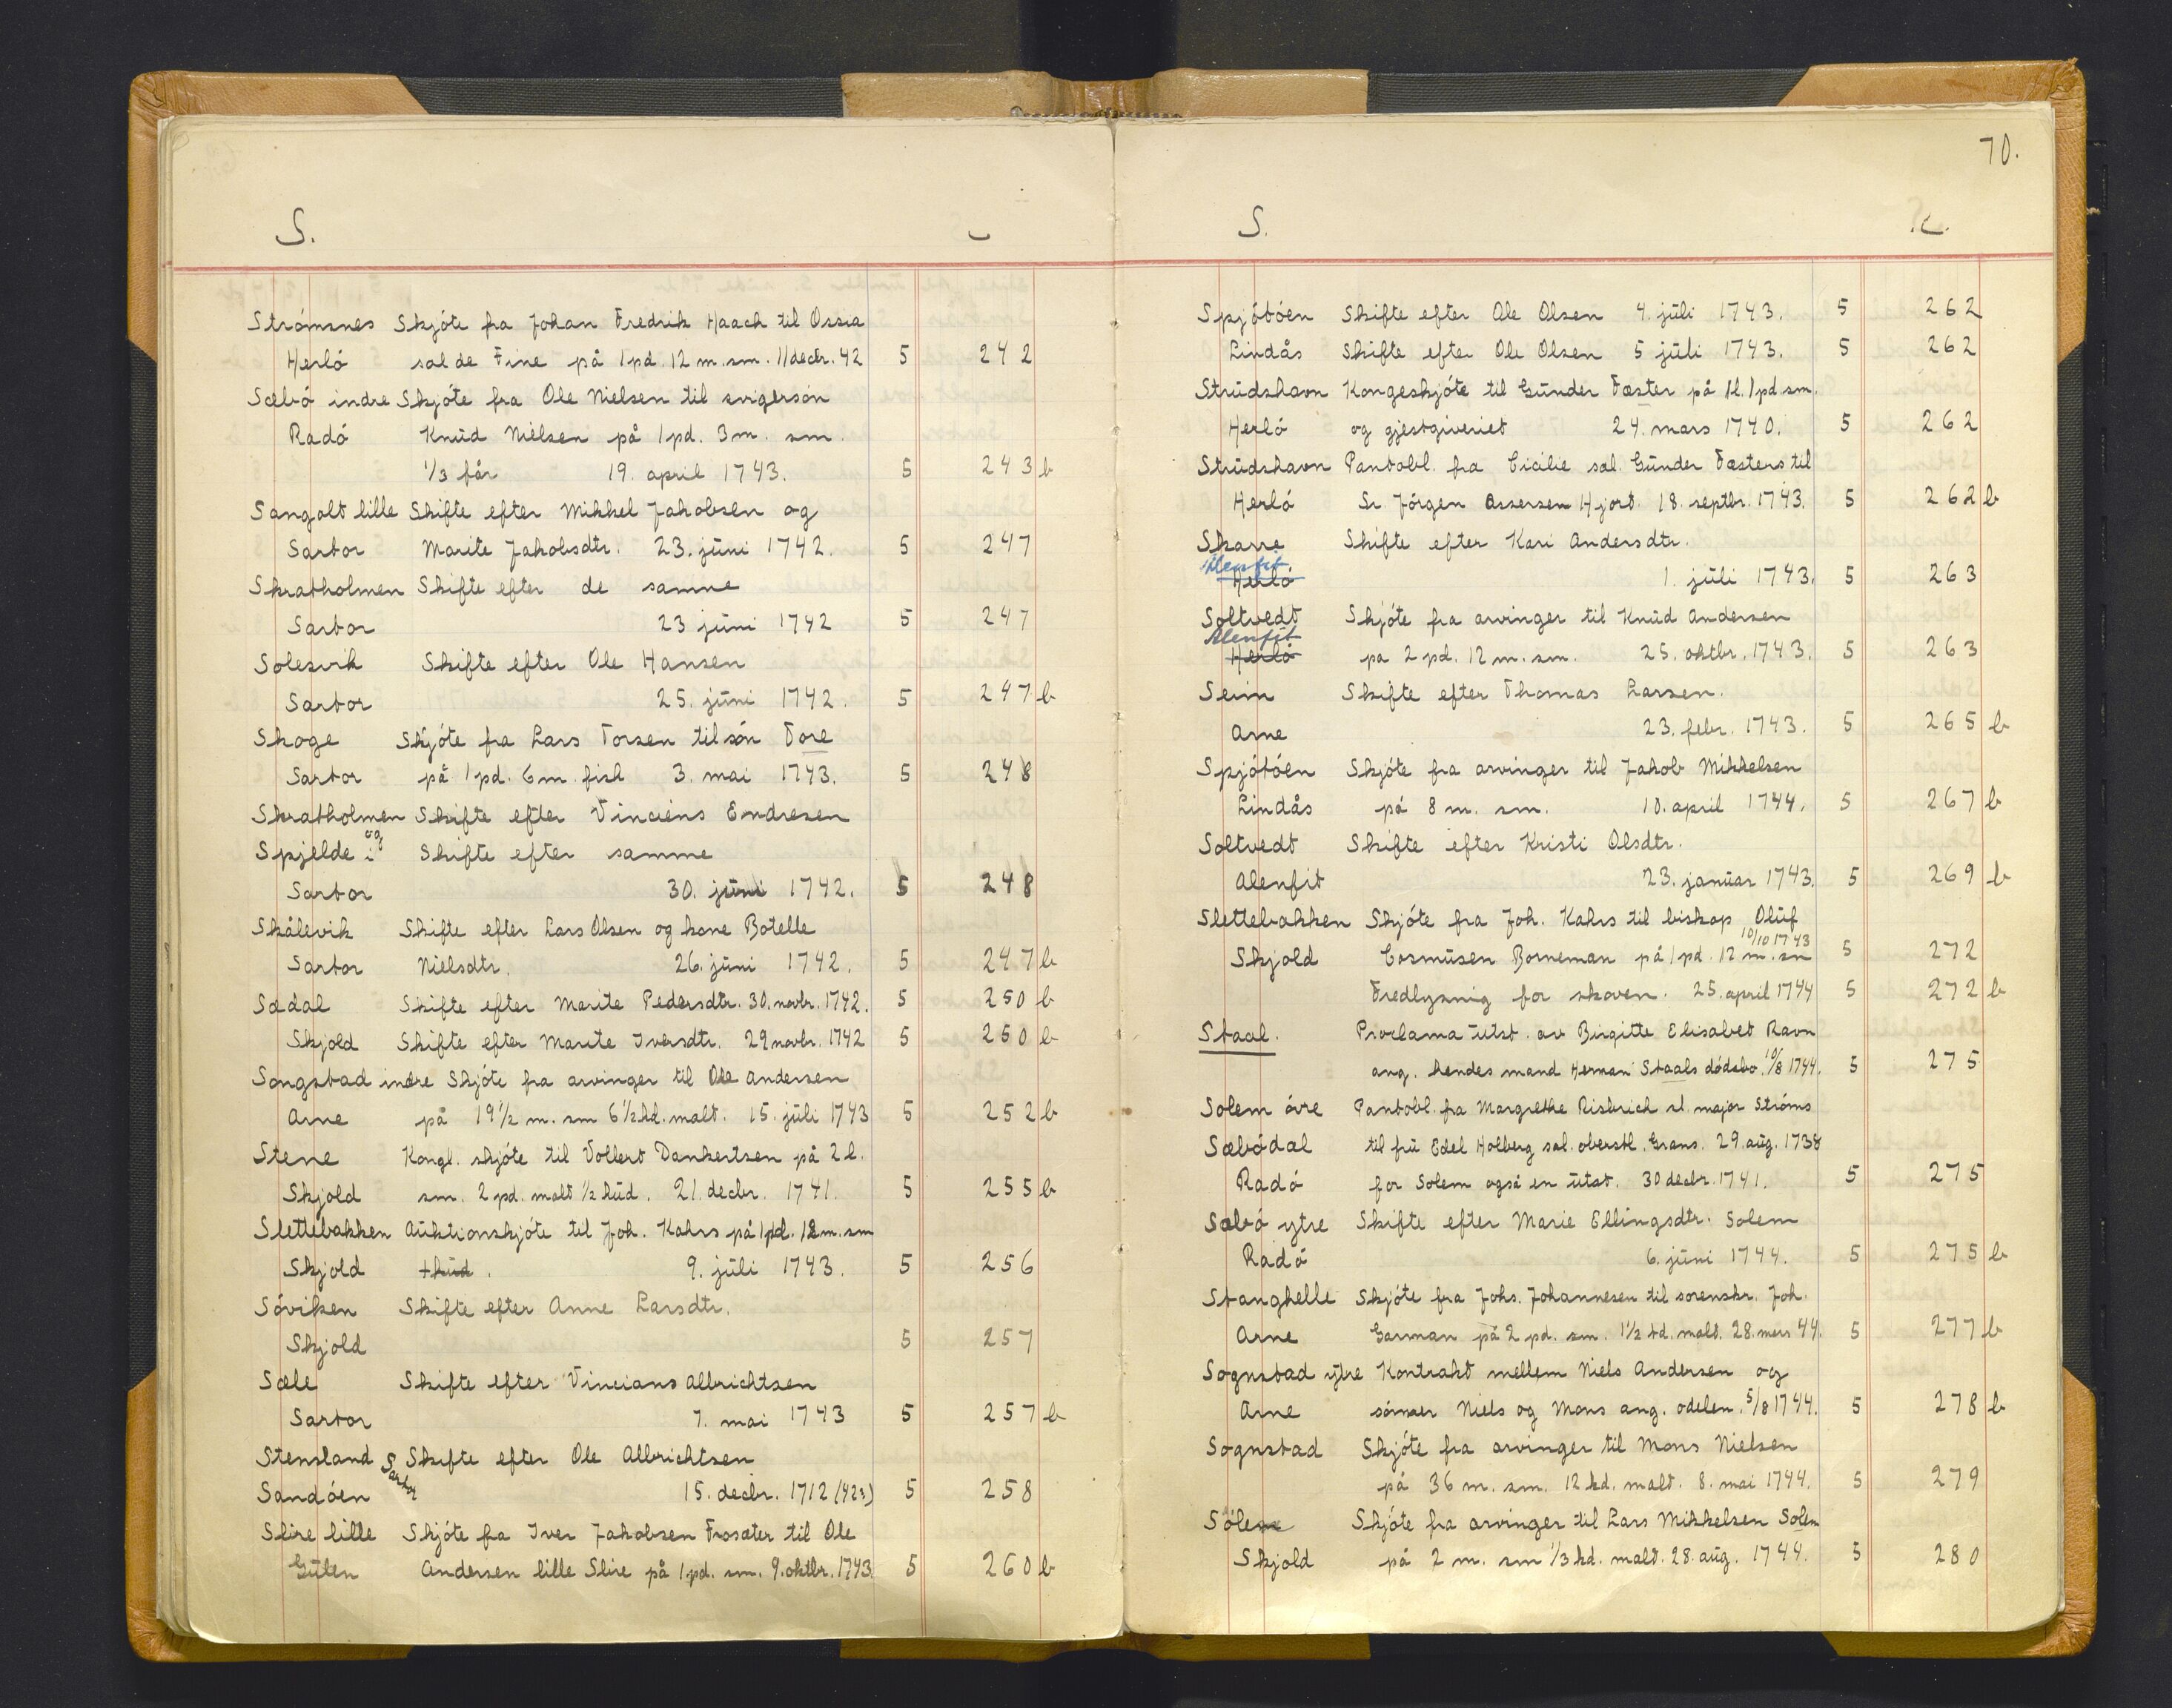 S.
Strómsnes Skjóte fra Johan Fredrik Haach til Ossia
Herló sal de Fine på 1 pd. 12 m. sm. 11 decbr. 42 5 242
Sæbó indre Skjóte fra Ole Nielsen til svigersón
Radó Knud Nielsen på 1 pd. 3 m. sm.
1/3 får 19. april 1743. 5 243 b
Sangolt lille Skifte efter Mikkel Jakobsen og
Sartor Marite Jakobsdtr. 23. juni 1742. 5 247
Skratholmen Skifte efter de samme
Sartor 23 juni 1742 5 247
Solesvik Skifte efter Ole Hansen
Sartor 25. juni 1742. 5 247 b
Skoge Skjóte fra Lars Torsen til són Tore
Sartor på 1 pd. 6 m. fisk 3. mai 1743. 5 248
Skratholmen Skifte efter Vinciens Endresen
og
Spjelde i Skifte efter samme
Sartor 30. juni 1742. 5 248
Skålevik Skifte efter Lars Olsen og kone Botelle
Sartor Nielsdtr. 26. juni 1742. 5 247 b
Sædal Skifte efter Marite Pedersdtr. 30. novbr. 1742. 5 250 b
Skjold Skifte efter Marite Iversdtr. 29 novbr. 1742 5 250 b
Songstad indre Skjóte fra arvinger til Ole Andersen
Arne på 19 1/2 m. sm 6 1/2 kd. malt. 15. juli 1743 5 252 b
Stene Kongl. skjóte til Vollert Dankertsen på 2 l.
Skjold sm. 2 pd. malt 1/2 hud. 21. decbr. 1741. 5 255 b
Slettebakken Auktionskjóte til Joh. Kahrs på 1 pd. 12 m. sm
Skjold 1 hud. 9. juli 1743. 5 256
Sóviken Skifte efter Anne Larsdtr.
Skjold 5 257
Sæle Skifte efter Vincians Albrichtsen
Sartor 7. mai 1743 5 257 b
Stensland Skifte efter Ole Albrichtsen
Sartor
Sandóen 15. decbr. 1712 (42?) 5 258
Slire lille Skjóte fra Iver Jakobsen Frosæter til Ole
Gulen Andersen lille Slire på 1 pd. sm. 9. oktbr. 1743. 5 260 b
70.
S.
Spjótóen Skifte efter Ole Olsen 4. juli 1743. 5 262
Lindås Skifte efter Ole Olsen 5 juli 1743. 5 262
Strudshavn Kongeskjóte til Gunder Fæster på 1 l. 1 pd sm.
Herló og gjestgiveriet 24. mars 1740. 5 262
Strudshavn Pantobl. fra Cicilie sal. Gunder Fæsters til
Herló Sr. Jörgen Assersen Hjort. 18. septbr. 1743. 5 262 b
Skarre Skifte efter Kari Andersdtr.
Alenfit.
Herló 1. juli 1743. 5 263
Soltvedt Skjóte fra arvinger til Knud Andersen
Alenfit
Herló pa 2 pd. 12 m. sm. 25. oktbr. 1743. 5 263
Seim Skifte efter Thomas Larsen.
Arne 23. febr. 1743. 5 265 b
Spjótóen Skjóte fra arvinger til Jakob Mikkelsen
Lindås på 8 m. sm. 10. april 1744. 5 267 b
Soltvedt Skifte efter Kristi Olsdtr.
Alenfit 23. januar 1743. 5 269 b
Slettebakken Skjóte fra Joh. Kahrs til biskop Oluf
10/10 1743
Skjold Cosmusen Borneman på 1 pd. 12 m. sm 5 272
Fredlysnig for skoven. 25. april 1744 5 272 b
Staal. Proclama utst. av Birgitte Elisabet Ravn
ang. hendes mand Herman Staals dódsbo. 10/8 1744. 5 275
Solem óvre Pantobl. fra Margrethe Risbrich sl. major Stróms
Sæbódal til fru Edel Holberg sal. oberstl. Grans. 29. aug. 1738
Radó for Solem også en utst. 30 decbr. 1741. 5 275
Sæbó ytre Skifte efter Marie Ellingsdtr. Solem
Radó 6. juni 1744. 5 275 b
Stanghelle Skjóte fra Johs. Johannesen til sorenskr. Joh.
Arne Garman på 2 pd. sm. 1 1/2 td. malt. 28. mars 44. 5 277 b
Sognstad ytre Kontrakt mellem Niels Andersen og
Arne sónner Niels og Mons ang. odelen. 5/8 1744. 5 278 b
Sognstad Skjóte fra arvinger til Mons Nielsen
på 36 m. sm. 12 kd. malt. 8. mai 1744. 5 279
Sólem Skjóte fra arvinger til Lars Mikkelsen Solem
Skjold på 2 m. sm 1/3 kd. malt. 28. aug. 1744. 5 280